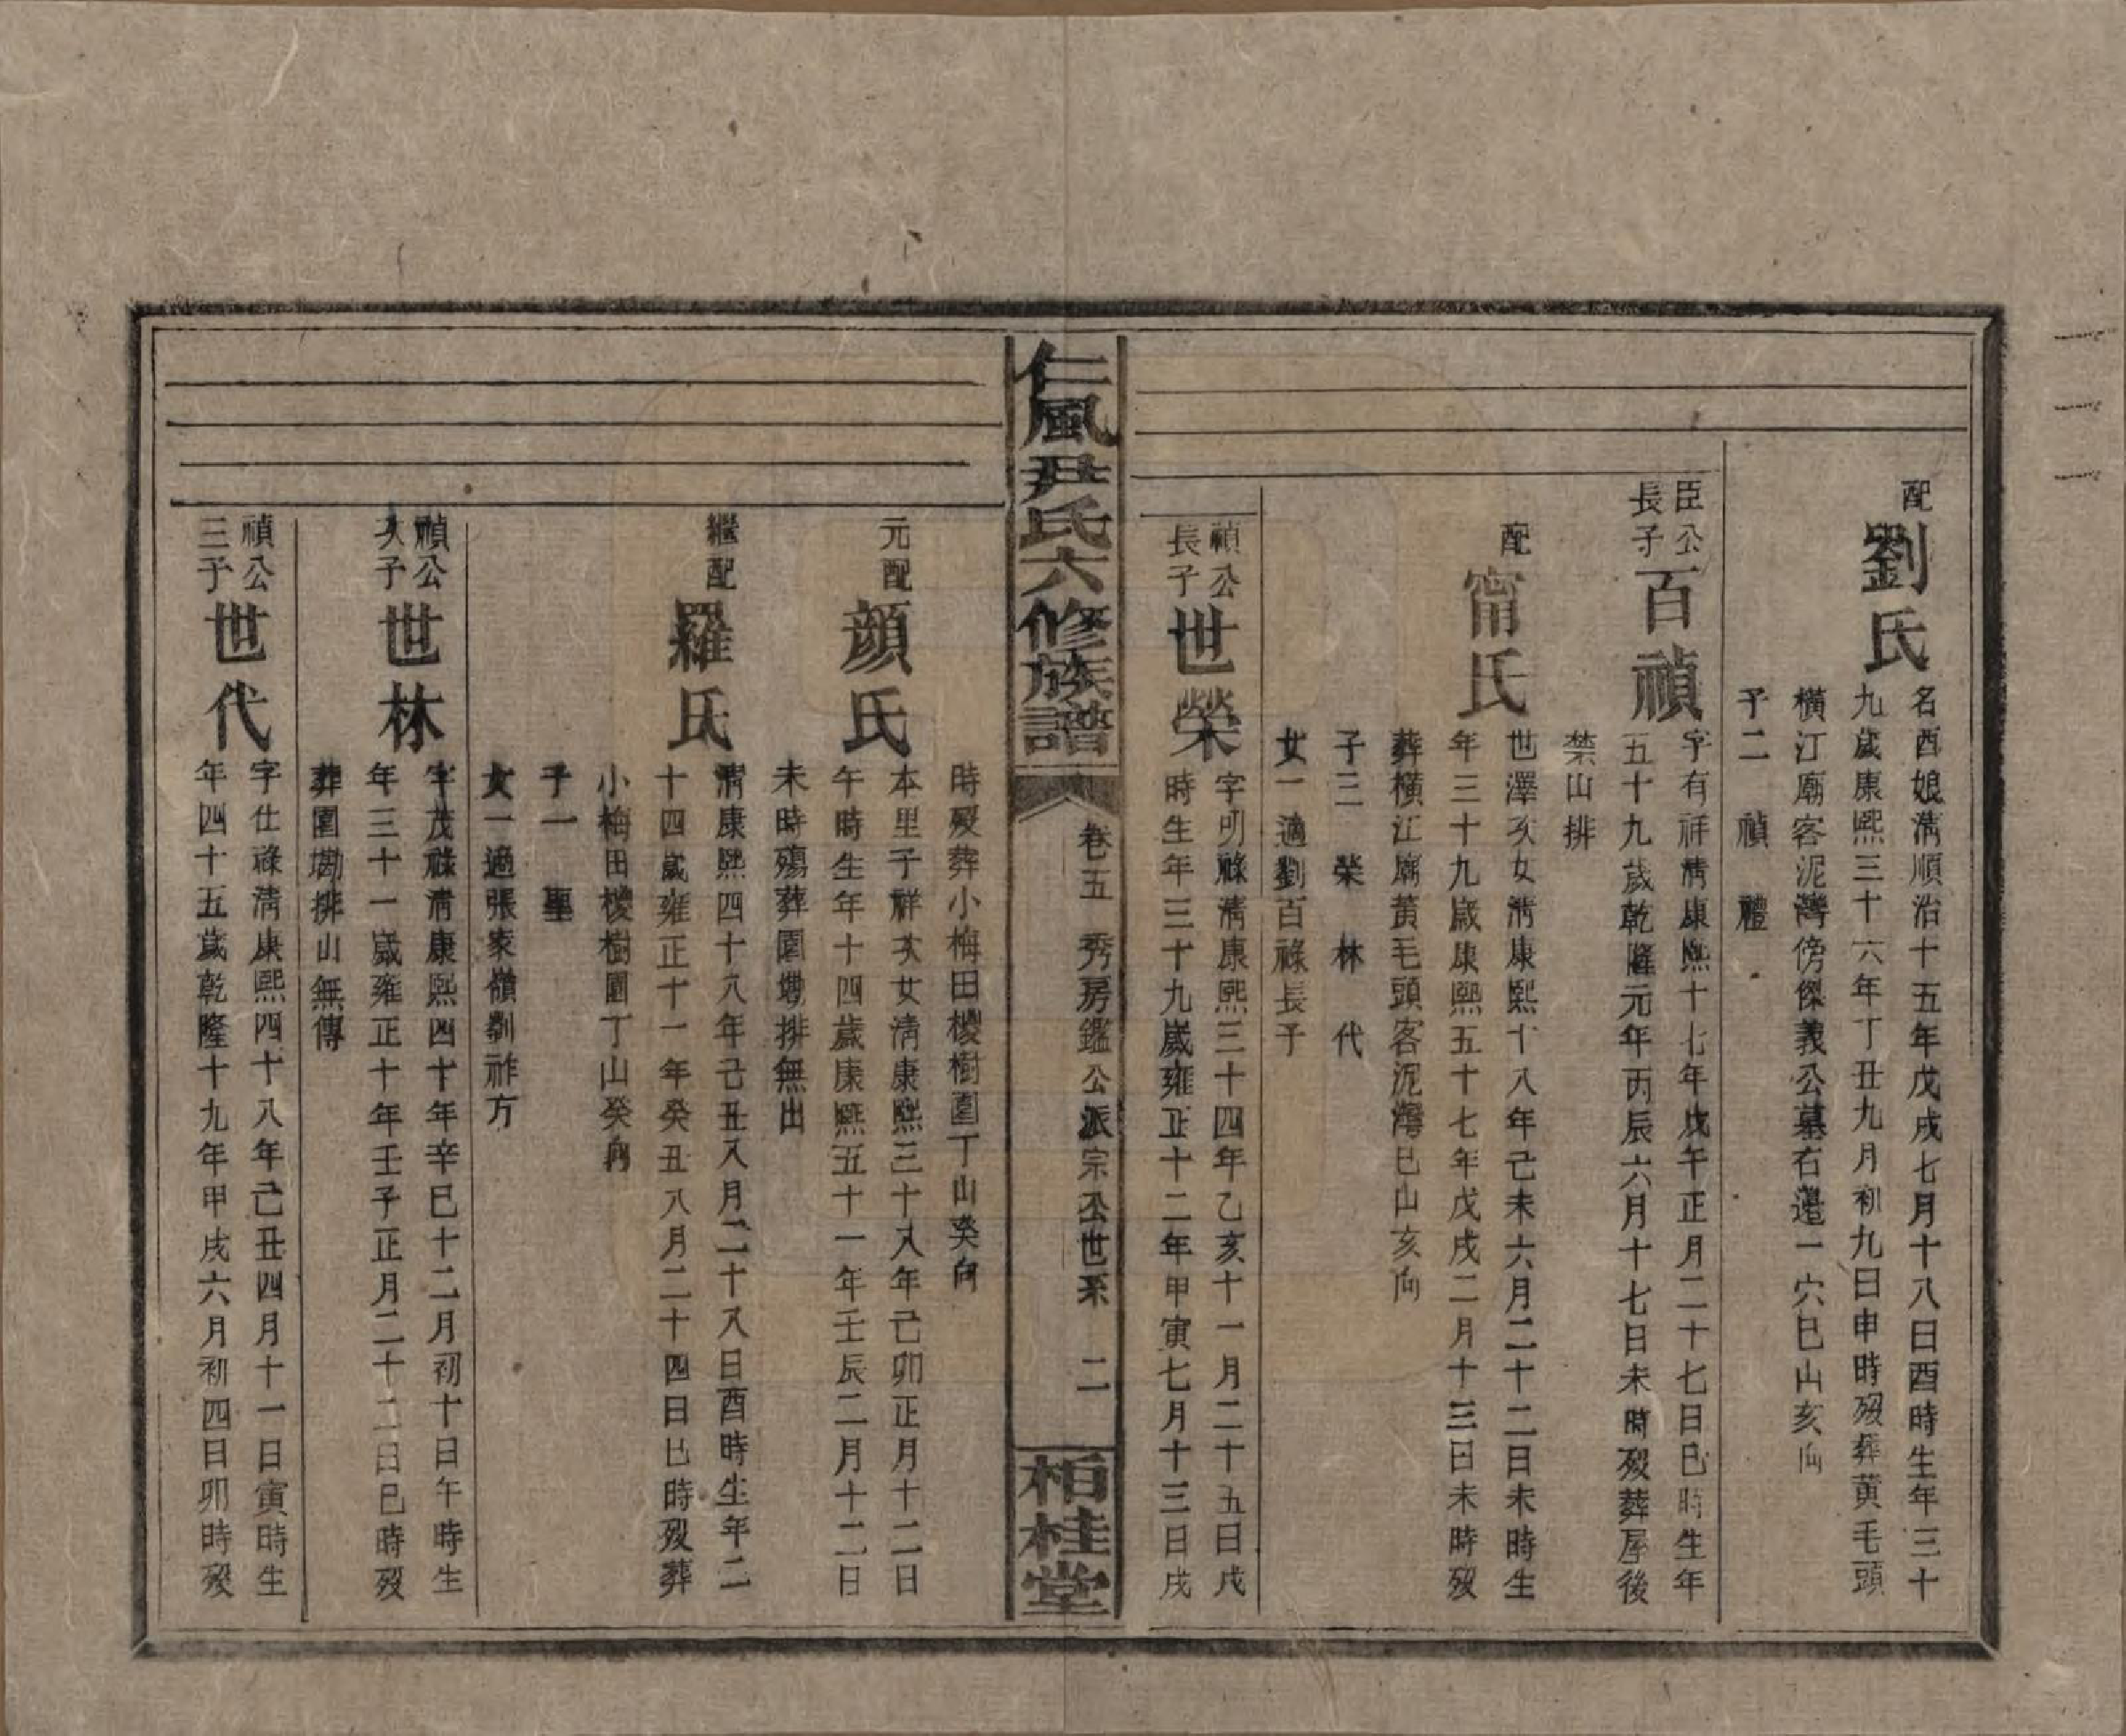 配
劉氏
名酉娘清順治十五年戊戌七月十八日酉時生年三十
九歲康熙三十六年丁丑九月初九日申時歿葬黃毛頭
橫江廟客泥灣傍傑義公墓右邊一穴巳山亥向
子二 禎 禮
臣公
長子
百禎
字有祥清康熙十七年戊午正月二十七日巳時生年
五十九歲乾隆元年丙辰六月十七日未時歿葬屋後
禁山排
配
甯氏
世澤次女清康熙十八年己未六月二十二日未時生
年三十九歲康熙五十七年戊戌二月十三日未時歿
葬橫江廟黃毛頭客泥灣巳山亥向
子三 榮 林 代
女一適劉百祿長子
禎公
長子
世榮
字明祿清康熙三十四年乙亥十一月二十五日戌
時生年三十九歲雍正十二年甲寅七月十三日戌
仁風尹氏六修族譜
卷五 秀房鑑公派宗公世系 二
栢桂堂
時歿葬小梅田椶樹園丁山癸向
元配
顏氏
本里子祥次女清康熙三十八年己卯正月十二日
午時生年十四歲康熙五十一年壬辰二月十二日
未時殤葬園塝排無出
繼配
羅氏
清康熙四十八年己丑八月二十八日酉時生年二
十四歲雍正十一年癸丑八月二十四日巳時歿葬
小梅田椶樹園丁山癸向
子一 聖
女一適張家嶺劉祚方
禎公
次子
世林
字茂祿清康熙四十年辛巳十二月初十日午時生
年三十一歲雍正十年壬子正月二十二日巳時歿
葬園塝排山無傳
禎公
三子
世代
字仕祿清康熙四十八年己丑四月十一日寅時生
年四十五歲乾隆十九年甲戌六月初四日卯時歿